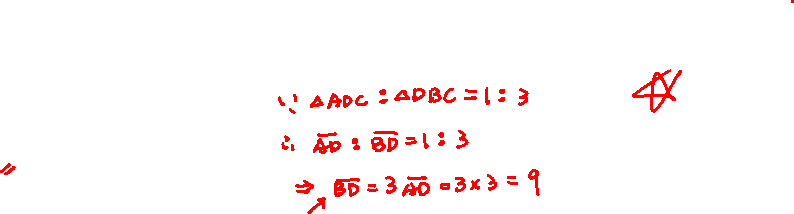 ∵ △ADC : △DBC = 1 : 3
∴ A̅D̅ : B̅D̅ = 1 : 3
⇒ B̅D̅ = 3 A̅D̅ = 3 × 3 = 9